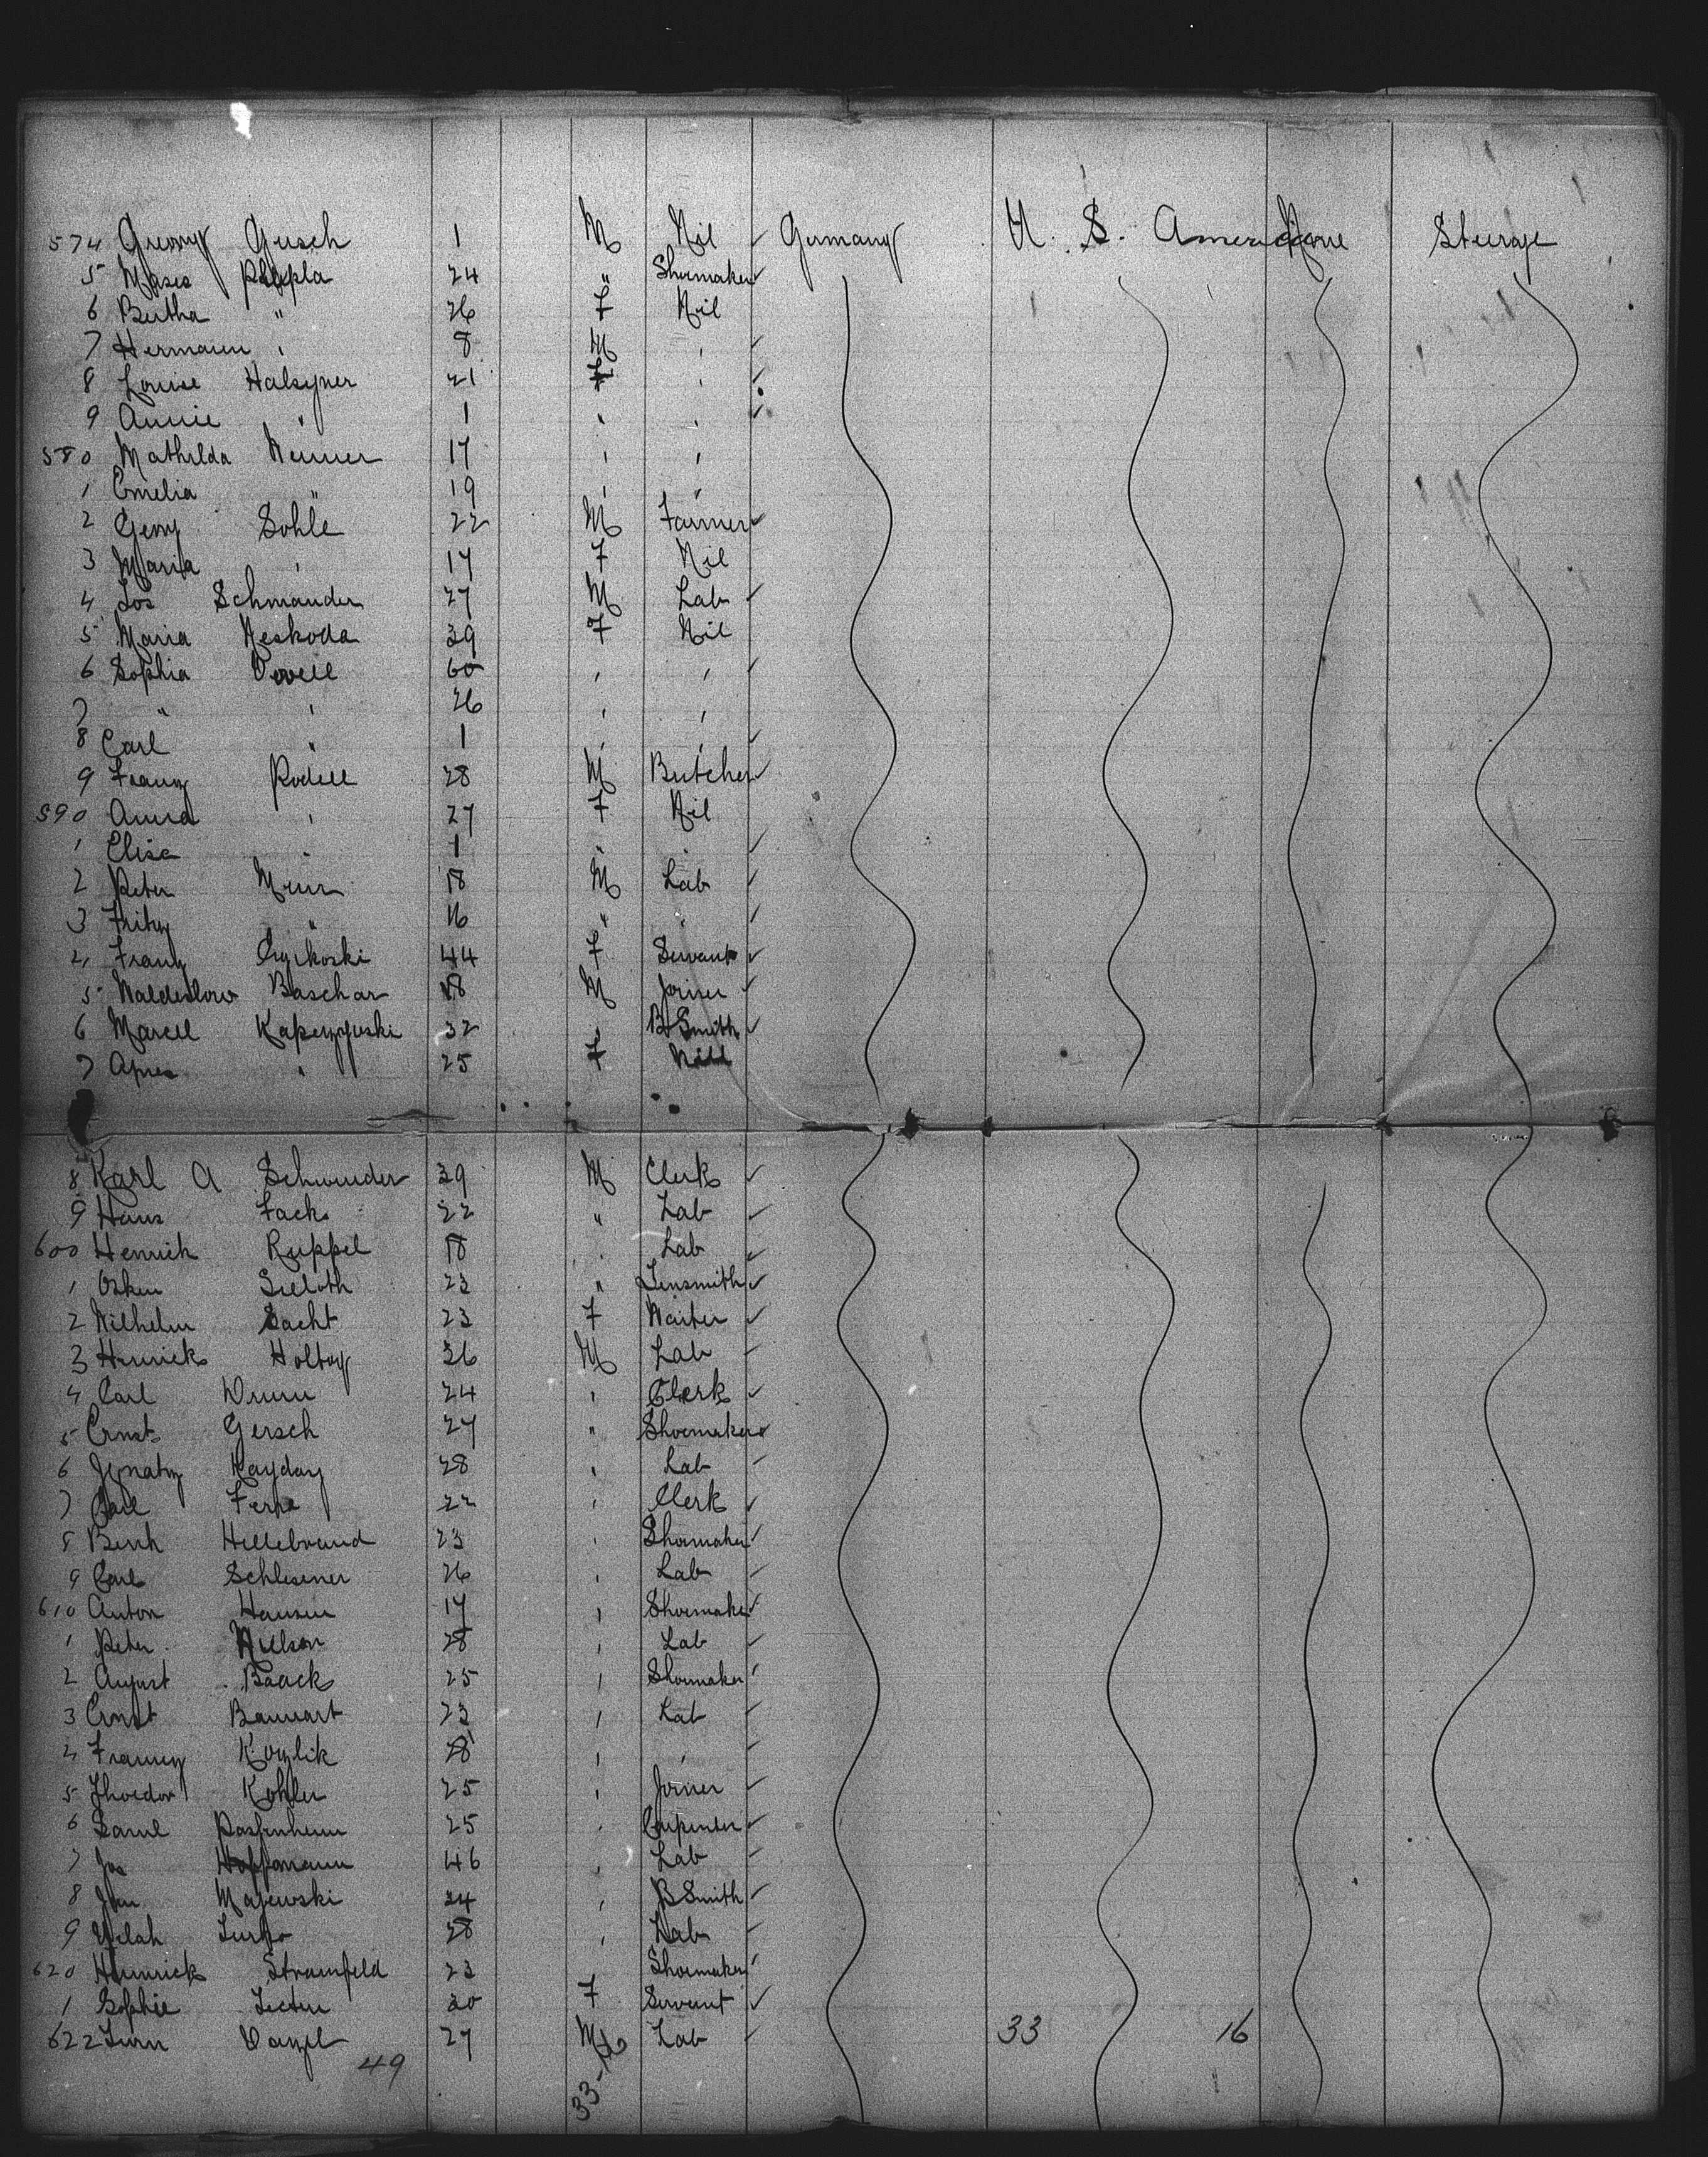 574 Georg Gersch 1 M Nil ✓ Germany U. S. America None Steerage
5 Moses 24 " Shoemaker ✓
6 Bertha " 26 F Nil
7 Hermann " 8 M " ✓
8 Louise Halsyner 21 F " ✓
9 Annie " 1 " " ✓
580 Mathilda 17 " "
1 Emelia " 19 " "
2 Georg Sohle 22 M Farmer ✓
3 Maria " 17 F Nil
4 Jos Schmander 27 M Lab ✓
5 Maria Neskoda 39 F Nil
6 Sophia 60 " " ✓
7 " " 26 " "
8 Carl " 1 " " ✓
9 Franz Rodell 28 M Butcher ✓
590 Anna " 27 F Nil
1 Elise " 1 " " ✓
2 Peter 18 M Lab ✓
3 Fritz " 16 " " ✓
4 Franz 44 F Servant ✓
5 Waldeslow Baschar 18 M Joiner ✓
6 Marcell 32 " B Smith ✓
7 Agnes " 25 F Nill
8 Karl A Schwender 39 M Clerk ✓
9 Hans Fack 22 " Lab ✓
600 Henrich Ruppel 18 " Lab ✓
1 Osker 23 " Tinsmith ✓
2 Wilhelm Sacht 23 F Waiter ✓
3 Henrick Holtog 26 M Lab ✓
4 Carl 24 " Clerk ✓
5 Ernst Gersch 27 " Shoemaker ✓
6 Ignatz Kayday 28 " Lab ✓
7 Carl 22 " Clerk ✓
8 Hillebrand 23 " Shoemaker ✓
9 Carl Schlesener 26 " Lab ✓
610 Anton Hansen 17 " Shoemaker ✓
1 Peter Nielson 28 " Lab ✓
2 August Baack 25 " Shoemaker ✓
3 Ernst Bannart 23 " Lab ✓
4 Franz Kozlik 28 " " ✓
5 Theodor Kohler 25 " Joiner ✓
6 Passenheim 25 " Carpenter ✓
7 Jos Hoffmann 46 " Lab ✓
8 Jan Majewski 24 " B Smith ✓
9 28 " Lab ✓
620 Heinrick Stramfeld 23 Shoemaker ✓
1 Sophie 20 F Servant ✓
622 27 M Lab ✓ 33 16
49
33-16